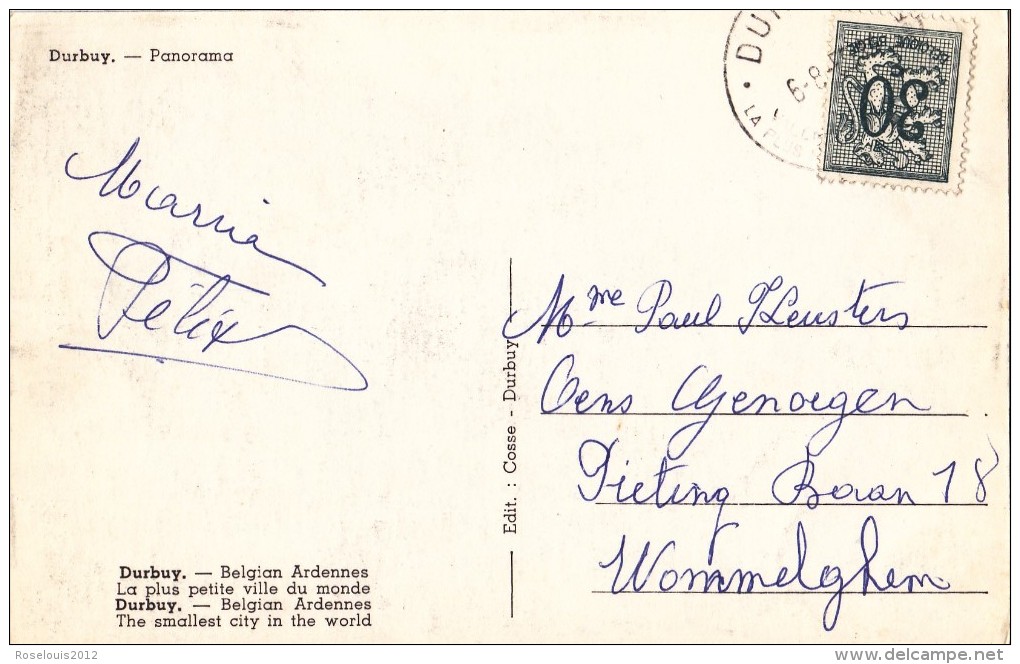 Durbuy. — Panorama
DU
6-8
LA PLUS
BELGIQUE BELGIE
30
Marria
Félix
Mme Paul Keusters
Oens Genoegen
Pieting Baan 18
Wommelghem
Edit. : Cosse - Durbuy
Durbuy. — Belgian Ardennes
La plus petite ville du monde
Durbuy. — Belgian Ardennes
The smallest city in the world
Roselouis2012
www.delcampe.net